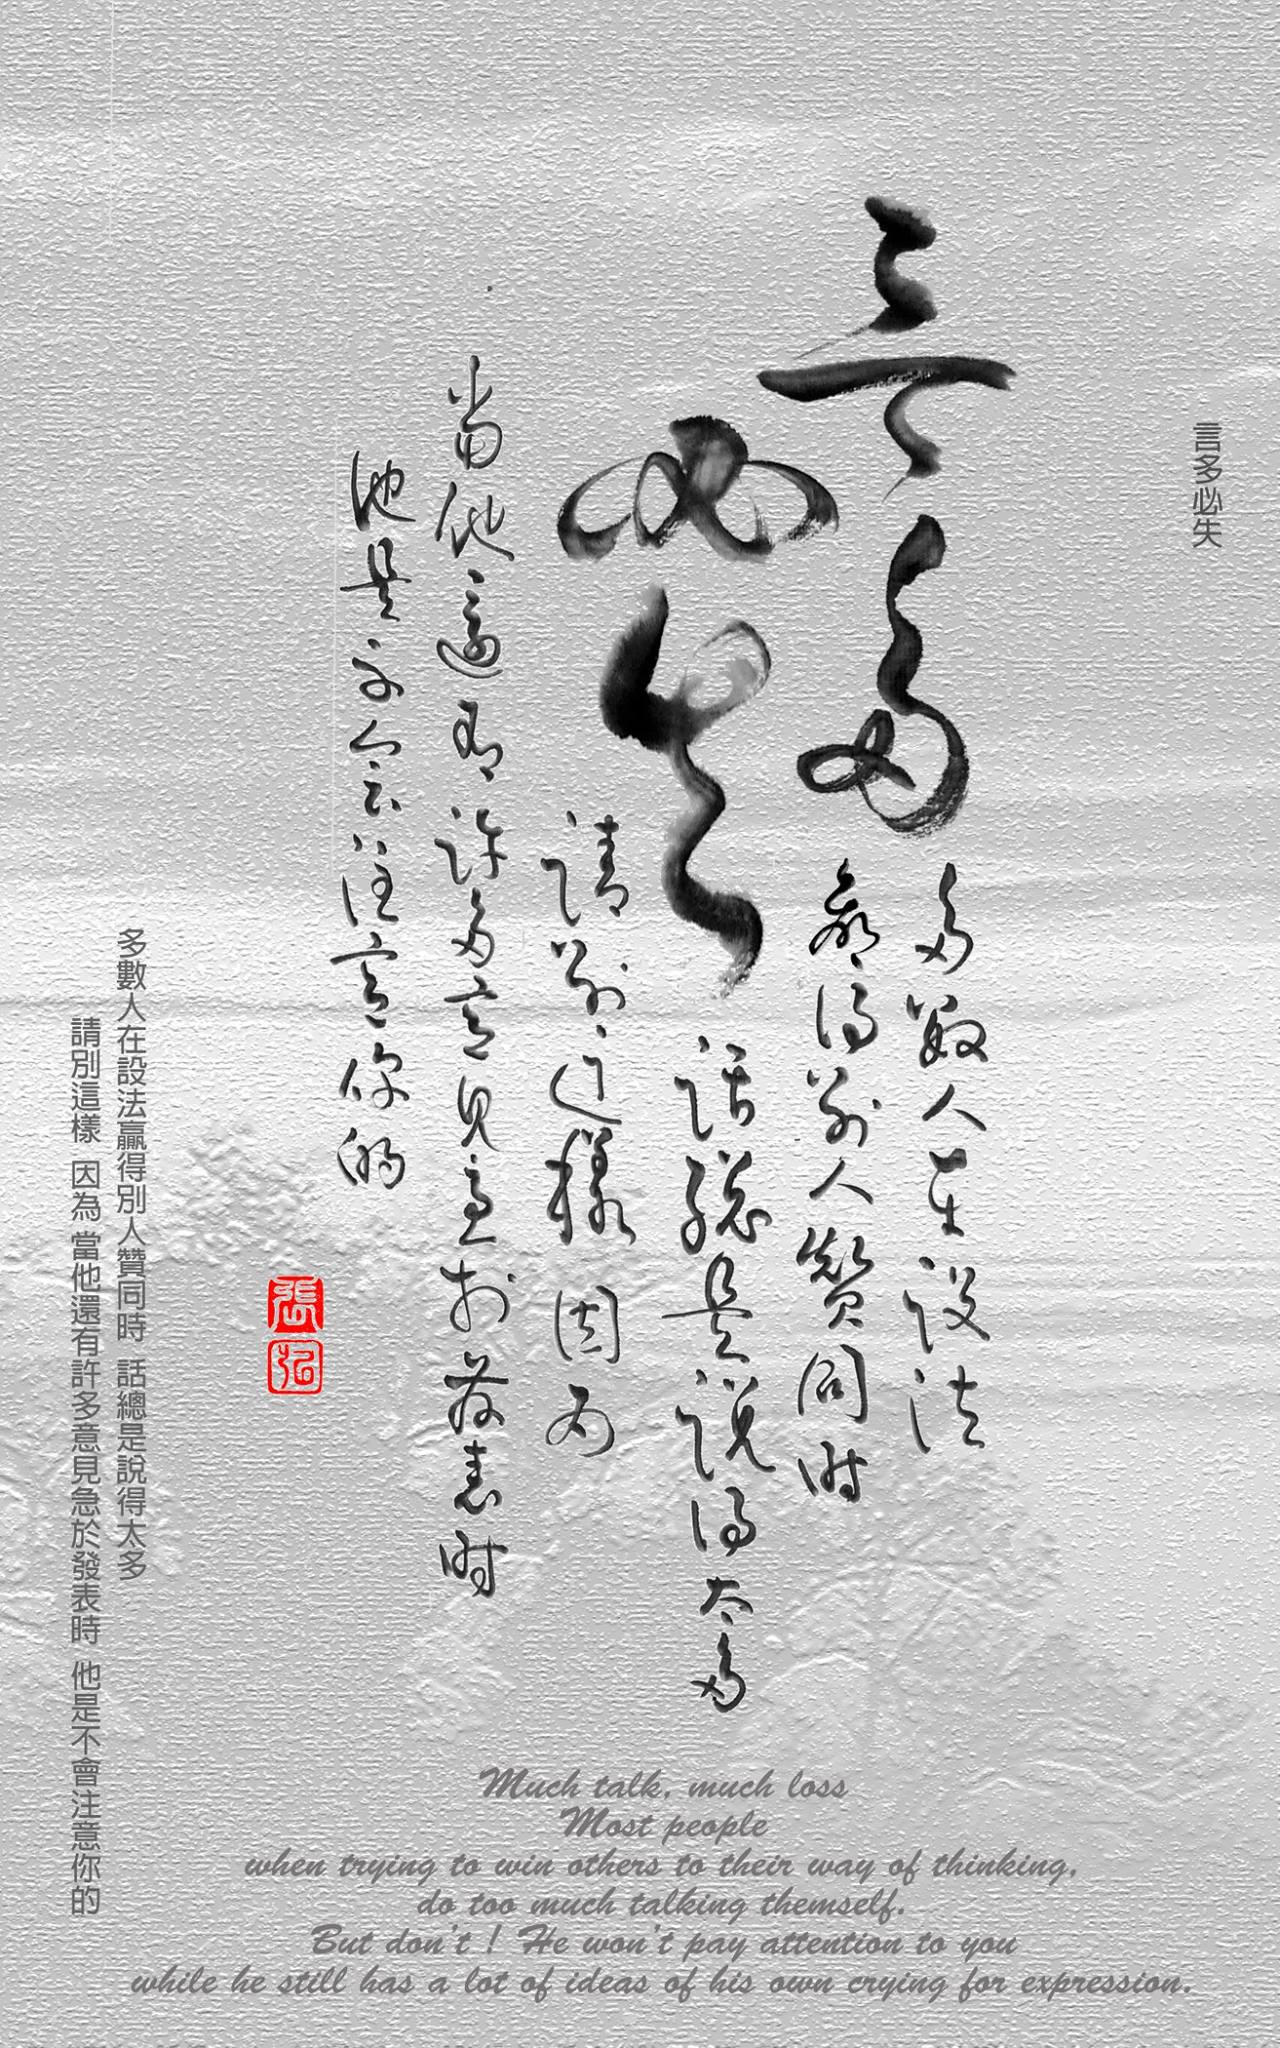 言多必失
言多
必失
多數人在設法
贏得別人贊同時
話總是說得太多
請別這樣因為
當他還有許多意見急於發表時
他是不會注意你的
多數人在設法贏得別人贊同時 話總是說得太多
請別這樣 因為 當他還有許多意見急於發表時 他是不會注意你的
Much talk, much loss
Most people
when trying to win others to their way of thinking,
do too much talking themself.
But don't ! He won't pay attention to you
while he still has a lot of ideas of his own crying for expression.